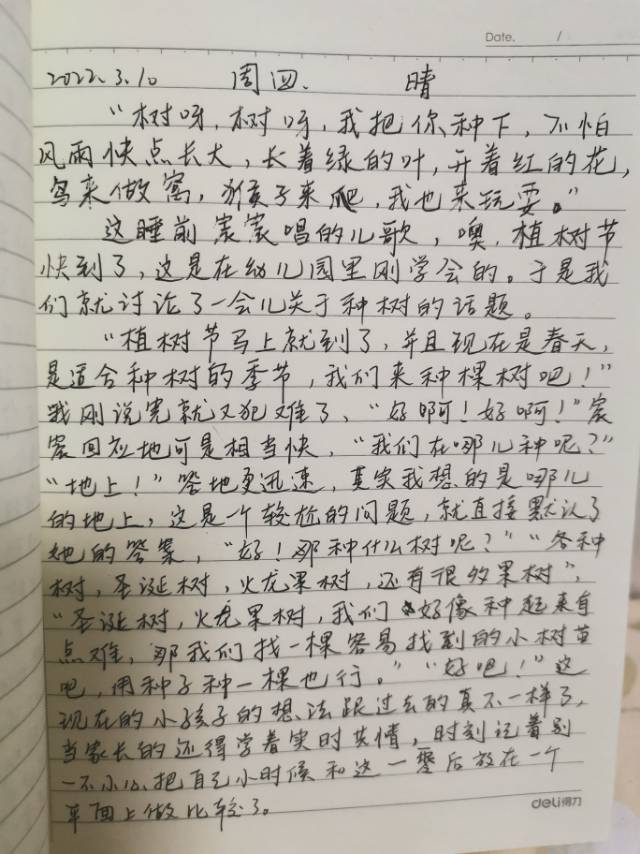 Date. /
2022.3.10 周四. 晴
“树呀,树呀,我把你种下,不怕
风雨快点长大,长着绿的叶,开着红的花,
鸟来做窝,猴子来爬,我也来玩耍。”
这睡前宸宸唱的儿歌,噢,植树节
快到了,这是在幼儿园里刚学会的。于是我
们就讨论了一会儿关于种树的话题。
“植树节马上就到了,并且现在是春天,
是适合种树的季节,我们来种棵树吧!”
我刚说完就又犯难了、“好啊!好啊!”宸
宸回应地可是相当快,“我们在哪儿种呢?”
“地上!”答地更迅速,其实我想的是哪儿
的地上,这是一个较尬的问题,就直接默认了
她的答案,“好!那种什么树呢?”“各种
树,圣诞树,火龙果树,还有很多果树”,
“圣诞树,火龙果树,我们好像种起来有
点难,那我们找一棵容易找到的小树苗
吧,用种子种一棵也行。”“好吧!”这
现在的小孩子的想法跟过去的真不一样了,
当家长的还得学着实时共情,时刻记着别
一不小心把自己小时候和这一零后放在一个
平面上做比较了。
deli得力